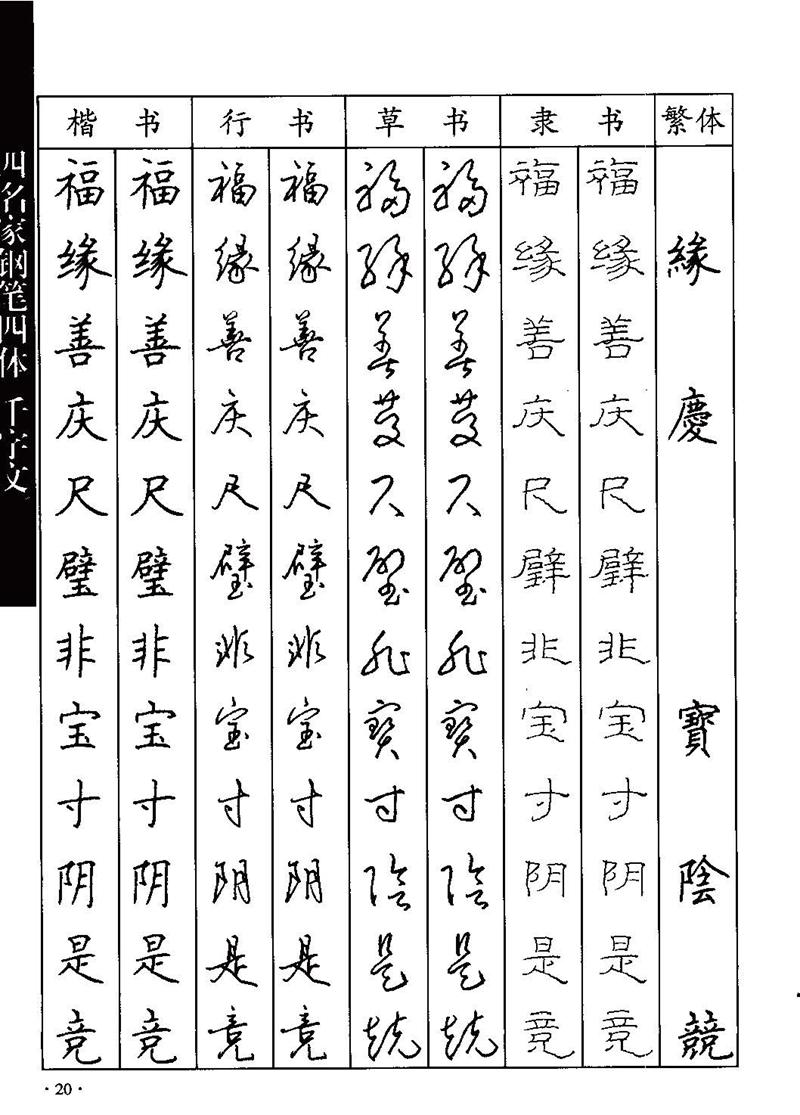 四名家钢笔四体 千字文
楷书 行书 草书 隶书 繁体
福 福 福 福 福 福 福 福
缘 缘 缘 缘 缘 缘 缘 缘 緣
善 善 善 善 善 善 善 善
庆 庆 庆 庆 慶 慶 庆 庆 慶
尺 尺 尺 尺 尺 尺 尺 尺
璧 璧 璧 璧 璧 璧 璧 璧
非 非 非 非 非 非 非 非
宝 宝 宝 宝 寶 寶 宝 宝 寶
寸 寸 寸 寸 寸 寸 寸 寸
阴 阴 阴 阴 陰 陰 阴 阴 陰
是 是 是 是 是 是 是 是
竞 竞 竞 竞 競 競 竞 竞 競
·20·